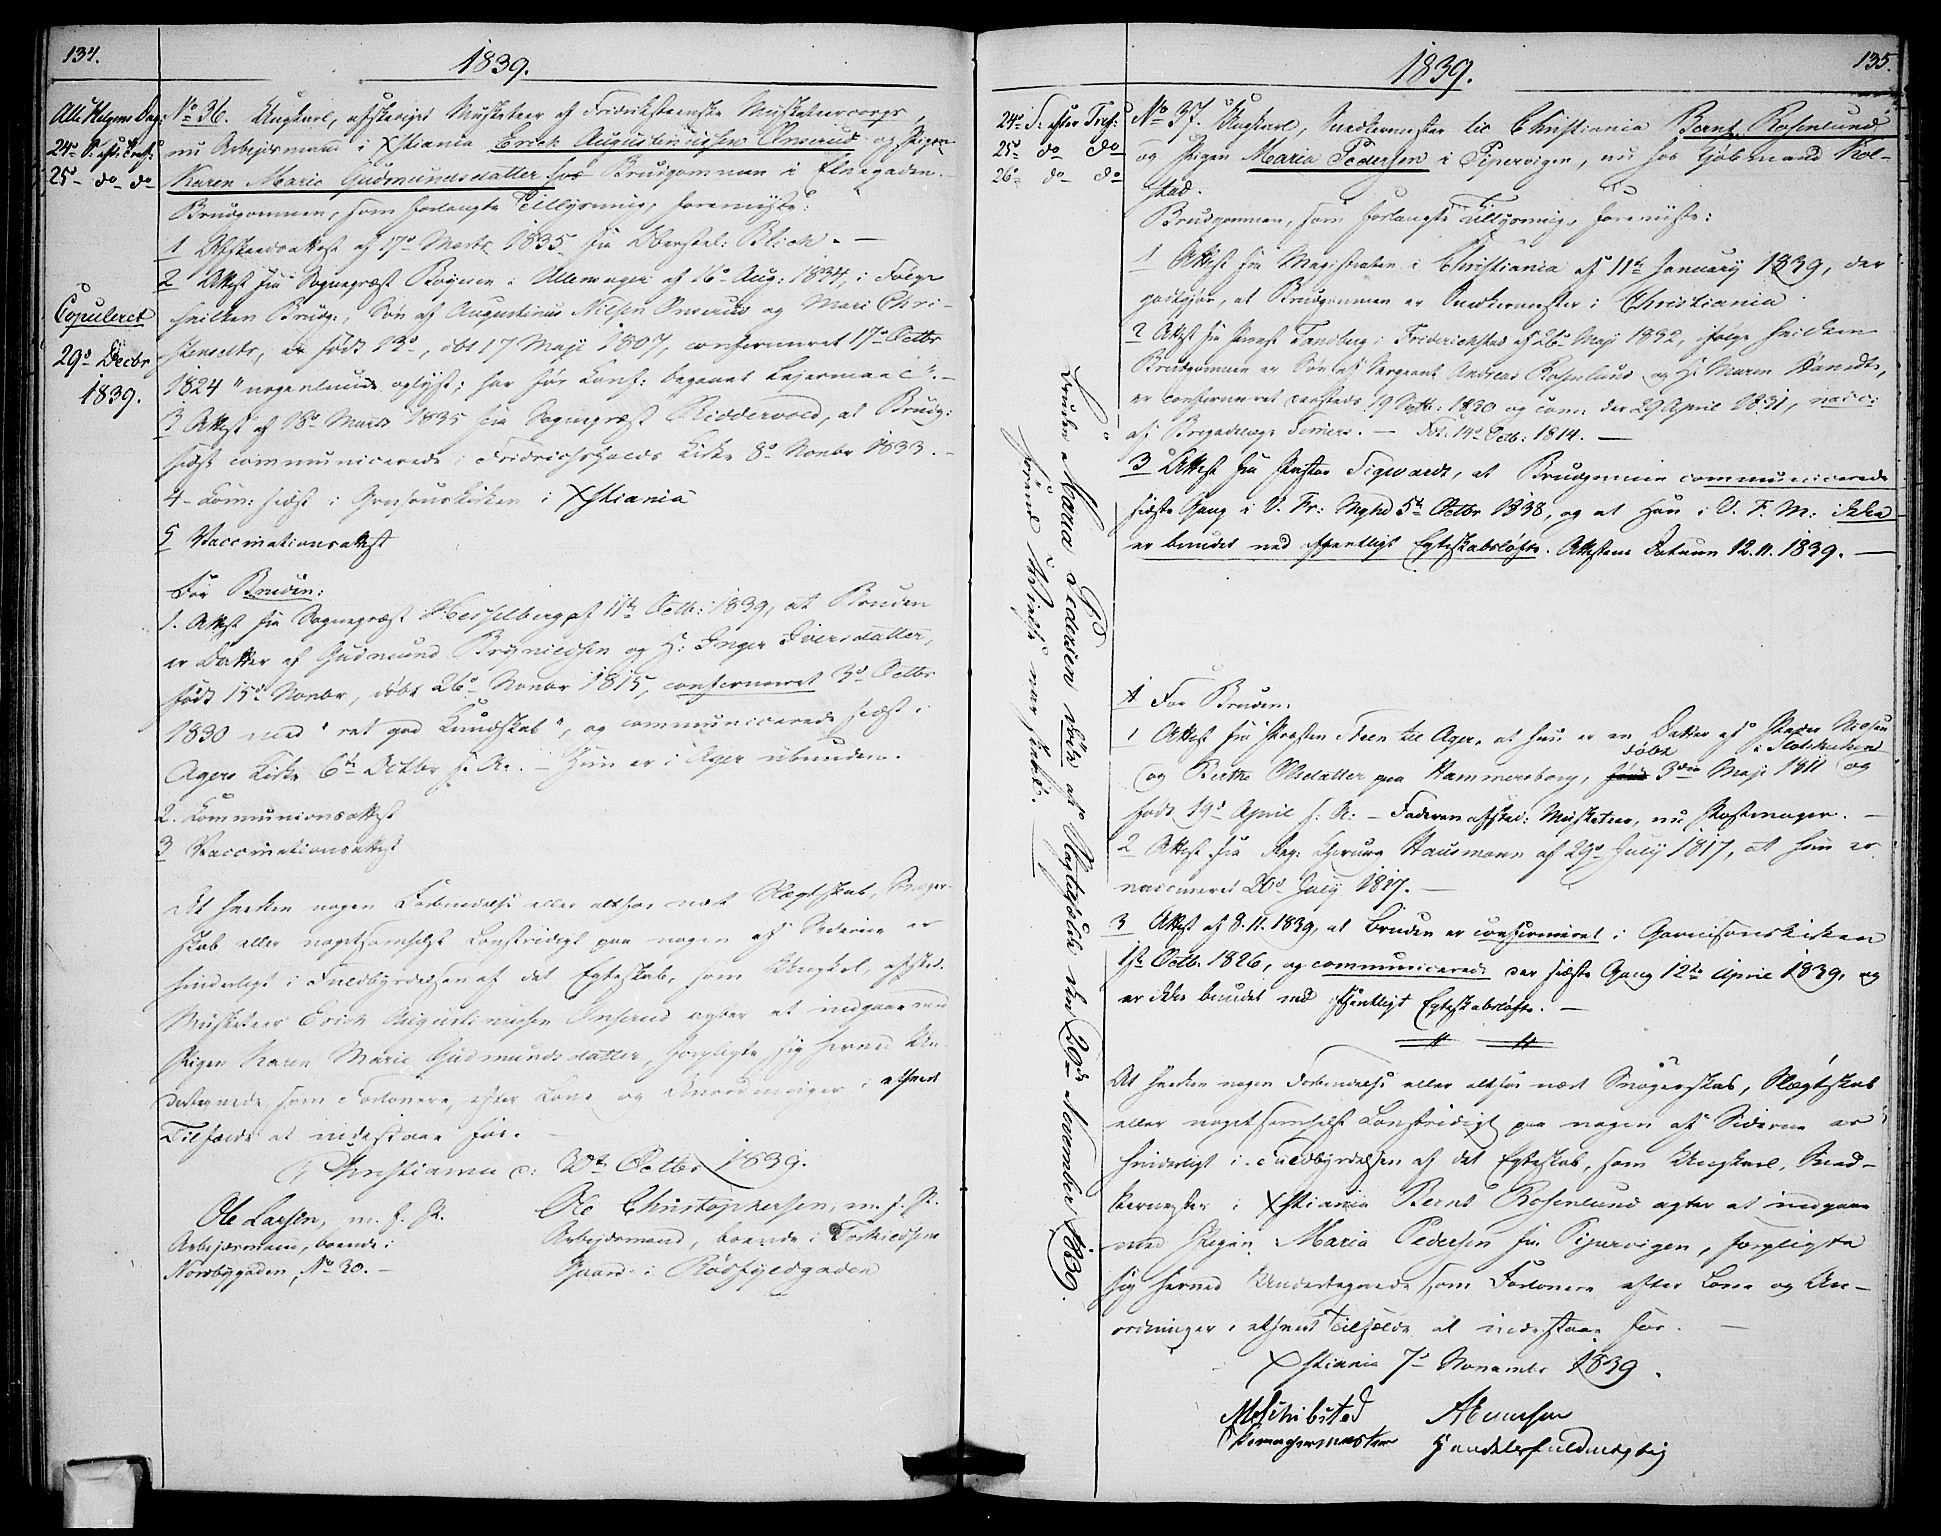 134.
1839.
Alle Helgens Dag:
24de S. eft: Tref:
25de do do
No 36. Ungkarl, afskediget Musketeer af Fredrikssteenske Musketeercorps,
nu Arbejdsmand i Xstiania Erich Augustinussen Onserud og Pigen
Karen Marie Gudmundsdatter hos Brudgommen i Elvegaden.
Brudgommen, som forlangte Tillysning, foreviiste:
1 Afskedsattest af 17de Marts 1835 fra Oberstl: Blich. —
2 Attest fra Sognepræst i Ullensager af 16de Aug: 1834, i Følge
hvilken Brudg:, Søn af Augustinus Nilsen Onserud og Mari Chri-
stensdtr, er født, døbt 17 Maji 1807, confirmeret 17de Octbr
1824 "nogenlunde oplyst; har før Conf: begaaet Lejermaal".—
3 Attest af 18de Marts 1835 fra Sognepræst Riddervold, at Brudg:
sidst communicerede i Fredrichshalds Kirke 8de Novbr 1833.—
4- Com: sidst i Garnisonskirken i Xstiania
5 Vaccinationsattest
Copuleret
29de Decbr
1839.
For Bruden:
1. Attest fra Sognepræst Hesselberg af 11te Octb: 1839, at Bruden
er Datter af Gudmund Brynildsen og H: Inger Iversdatter,
født 15de Novbr, døbt 26de Novbr 1815, confirmeret 3de Octbr
1830 med "ret god Kundskab", og communicerede sidst i
Agers Kirke 6te Octbr s. A. — Hun er i Ager ubunden.
2. Communionsattest
3 Vaccinationsattest
At hverken nogen Forbindelse eller altfor nær Slægtskab, Svoger-
skab eller nogetsomhelst Lovstridigt paa nogen af Siderne er
hinderligt i Fuldbyrdelsen af det Egteskab, som Ungkarl, afsked.
Musketeer Erich Augustinussen Onserud agter at indgaae med
Pigen Karen Marie Gudmundsdatter, forpligte sig herved Un-
dertegnede som Forlovere, efter Love og Anordninger i ethvert
Tilfælde at indestaae for.
Christiania d: 30te Octbr 1839.
Ole Larsen, m. f. P.
Arbejdsmand, boende i
Norbygaden, No 30. —
Ole Christophersen, m. f. P.
Arbejdsmand, boende i
Gaard i Rødfyldgaden
135.
1839.
24de S. efter Tref:
25de do do
26de do do
No 37. Ungkarl, Snedkermester til Christiania Bernt Rosenlund
og Pigen Maria Pedersen i Pipervigen, nu hos Kjøbmand Kol-
stad.
Brudgommen, som forlangte Tillysning, foreviiste:
1 Attest fra Magistraten i Christiania af 11te January 1839, der
godtgjør, at Brudgommen er Snedkermester i Christiania
2 Attest fra Præst Tandberg i Friderichstad af 26de Maji 1832, ifølge hvilken
Brudgommen er Søn af Sergeant Andreas Rosenlund og H: Maren,
er confirmeret sammesteds 19 Sptb: 1830 og com: der 29 April 1831, vacc:
af Brigadelæge. — Fdt: 14de Octb: 1814. —
3 Attest fra Pastor Sigwardt, at Brudgommen communicerede
sidste Gang i V. Fr: Mghd 5te Octbr 1838, og at han i V. F. M: ikke
er bundet ved offentligt Egteskabsløfte. Attestens Datum 12.11.1839. —
Bruden Maria Pedersen døde af den 20de November 1839.
førend var skeet. —
For Bruden:
1 Attest fra Præsten Steen til Ager, at hun er en Datter af Peder Nielsen
og Berthe Olsdatter paa Hammersborg, født døbt 3die Maji 1811 i Slotskirken og
født 19de April s. A: — Faderen afsked: Musketeer, nu Skofmager. —
2 Attest fra Reg: Chirurg Hausmann af 29de July 1817, at hun er
vaccineret 20de July 1817. —
3 Attest af 8.11.1839, at Bruden er confirmeret i Garnisonskirken
1ste Octb. 1826, og communicerede der sidste Gang 12te April 1839, og
er ikke bundet ved offentligt Egteskabsløfte. —
At hverken nogen Forbindelse eller altfor nært Svogerskab, Slægtskab
eller nogetsomhelst Lovstridigt paa nogen af Siderne er
hinderligt i Fuldbyrdelsen af det Egteskab, som Ungkarl, Sned-
kermester i Xstiania Bernt Rosenlund agter at indgaae
med Pigen Maria Pedersen fra Pipervigen, forpligte
sig herved Undertegnede som Forlovere efter Love og An-
ordninger i ethvert Tilfælde at indestaae for. —
Xstiania 7de November 1839.
M Schibsted
A Evensen
Handelsfuldmægtig